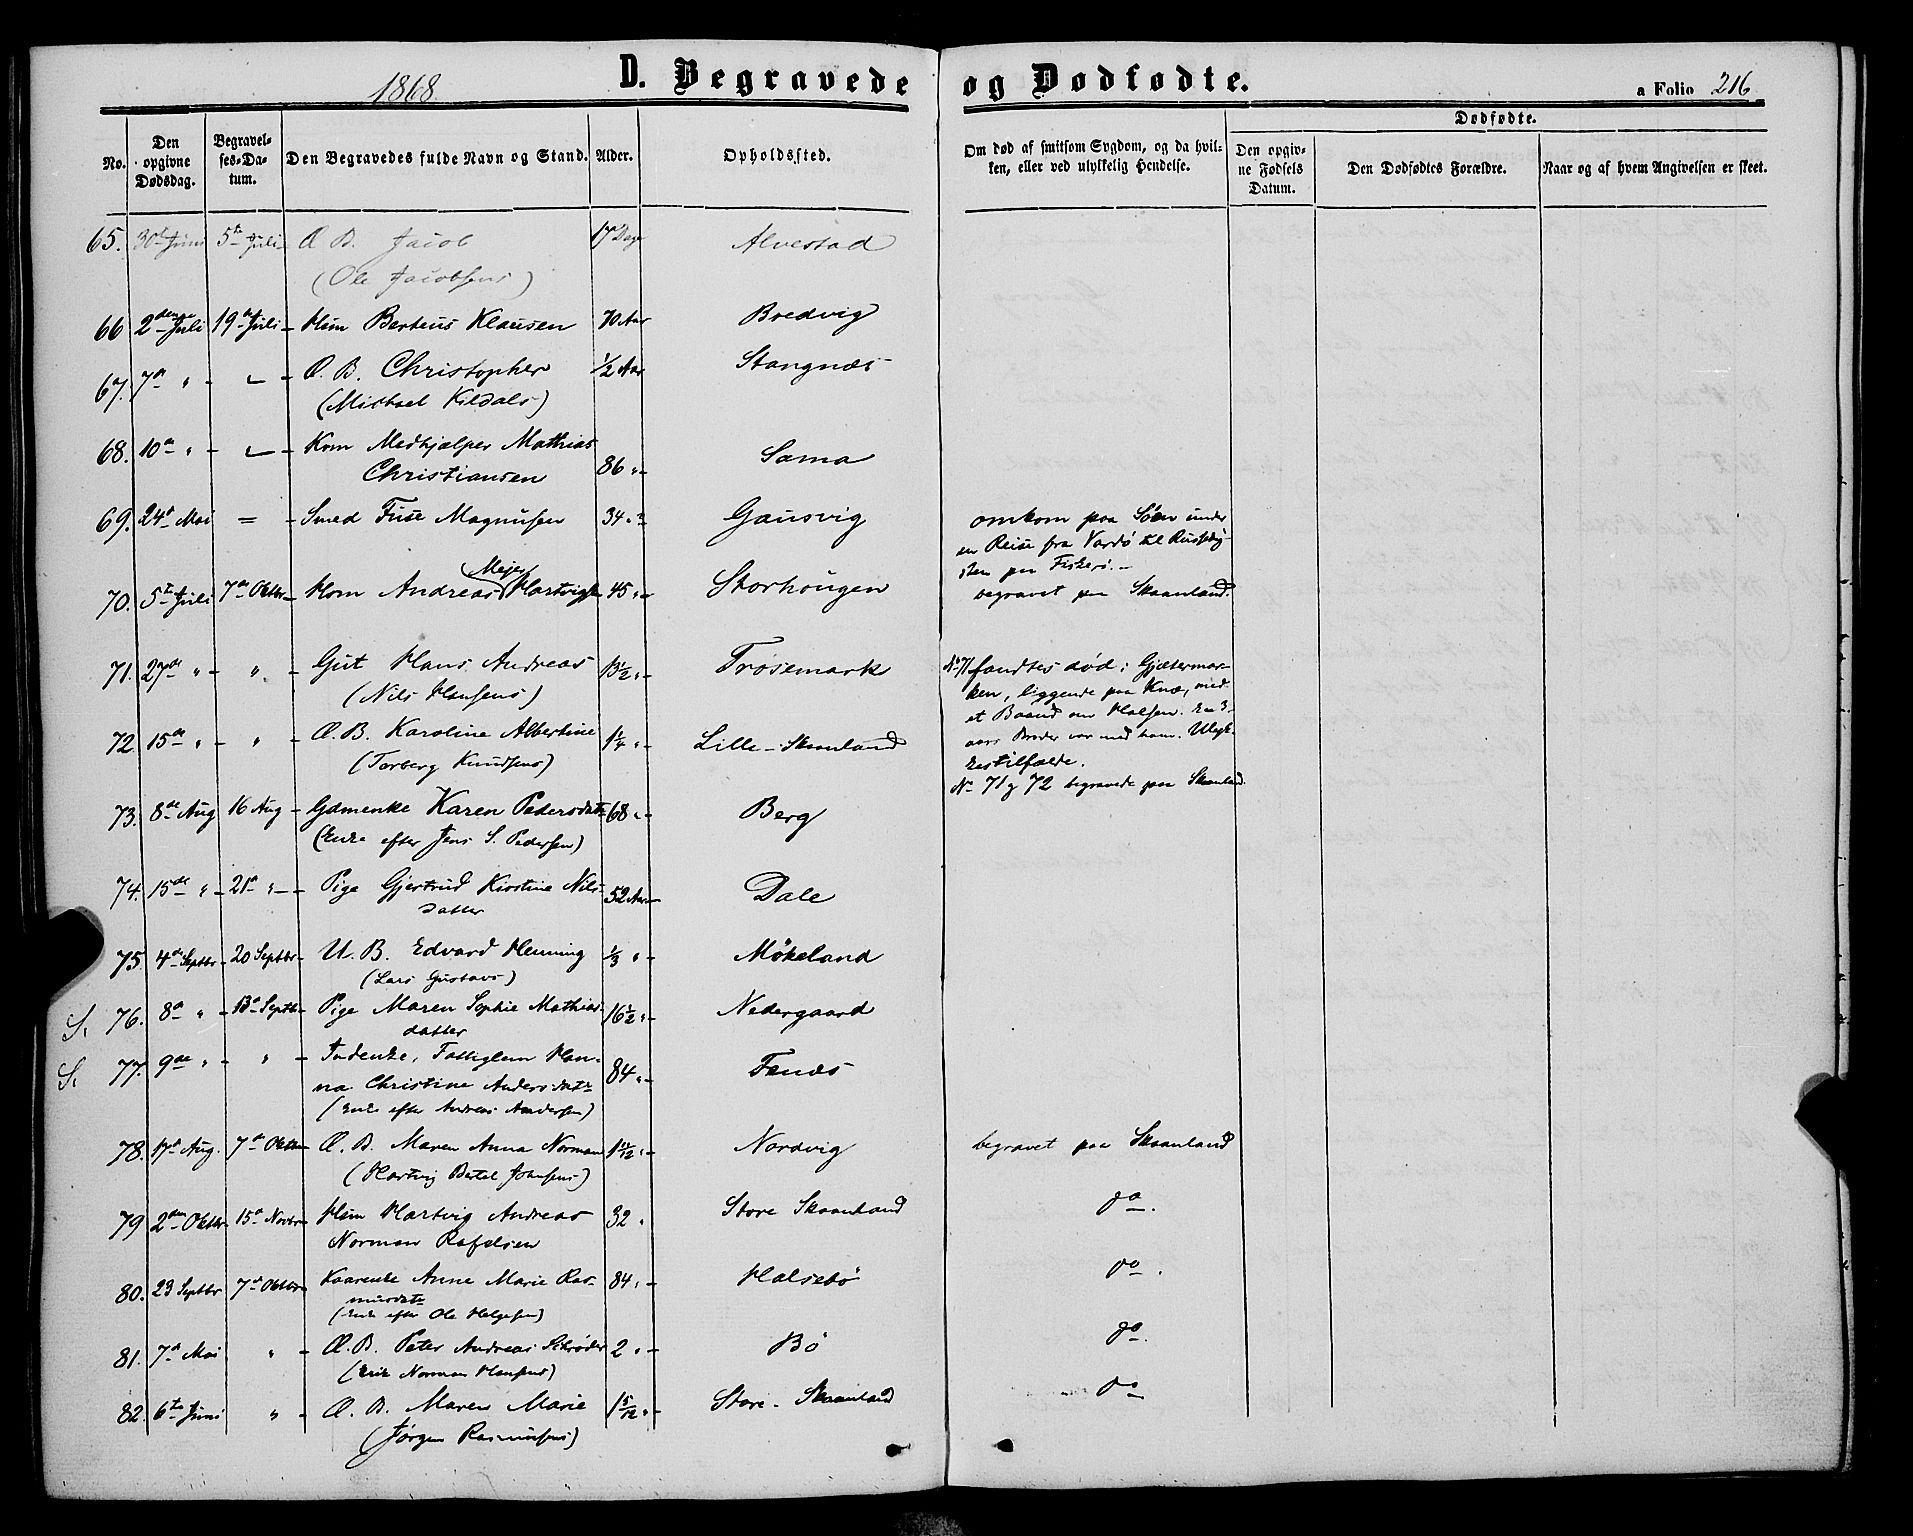 1868. D. Begravede og Dødfødte. a Folio 216
Dødfødte.
No. Den opgivne Dødsdag. Begravelses-Datum. Den Begravedes fulde Navn og Stand. Alder. Opholdssted. Om død af smitsom Sygdom, og da hvilken, eller ved ulykkelig Hendelse. Den opgivne Fødsels Datum. Den Dødfødtes Forældre. Naar og af hvem Angivelsen er skeet.
65. 30te Juni 5te Juli Æ B. Jacob 17 Dage Alvestad
(Ole Jacobsens)
66 2den Juli 19de Juli Hsm Berteus Klausen 70 Aar Bredvig
67. 7de " Æ. B. Christopher 1/2 Aar Stangnæs
(Michael Kildals)
68. 10de " Kom Medhjælper Mathias
Christiansen 86 " Sama
69. 24de Mai = Smed Fuse Magnusen 34 " Gausvig omkom paa Søen under
en Reise fra Vardø til
paa Fiskeri.
Mejer
70. 5te Juli 7de Oktbr Hsm Andreas Hartvigsen 45 " Storhougen begravet paa Skaanland.
71. 27de " " Gut Hans Andreas 13 1/2 " Trøsemark No 71 fandtes død i Gjætermar-
(Nils Hansens) ken, liggende paa Knæ, med
et Baand om Halsen. En 3
72 15de " " Æ. B. Karoline Albertine 1 1/4 " Lille-Skaanland aars Broder var med ham. Ulyk-
(Torberg Knudsens) kestilfælde.
No 71 og 72 begravede paa Skaanland.
73. 8de Aug 16 Aug Gdmenke Karen Pedersdatr 68 " Berg
(Enke efter Jens S. Pedersen)
74. 15de " 21de " Pige Gjertrud Kirstine Nils-
datter 52 Aar Dale
75. 4de Septbr 20 Septbr U. B. Edvard Henning 1/3 " Møkeland
(Lars Gustavs)
S. 76. 8de " 13de Septbr Pige Maren Sophie Mathias-
datter 16 1/2 " Nedergaard
S. 77. 9de " " Inderste, Fattiglem Han-
na Christine Andersdatr 84 " Fenæs
(Enke efter Andreas Andersen)
78. 17de Aug. 7de Oktbr Æ. B. Maren Anna Norman 1 11/12 " Nordvig begravet paa Skaanland
(Hartvig Bertel Johnsens)
79 2den Oktbr 15de Novbr Hsm Hartvig Andreas 32 " Store Skaanland do.
Norman Rafelsen
80. 23 Septbr 7de Oktbr Kaarenke Anne Marie Ras-
musdatr 84 " Halsebø do.
(Enke efter Ole Helgesen)
81. 7de Mai " Æ. B. Peter Andreas Schrøder 2 " Bø do.
(Erik Norman Hansens)
82. 6te Juni " Æ. B. Maren Marie 1 5/12 " Store-Skaanland do
(Jørgen Rasmusens)